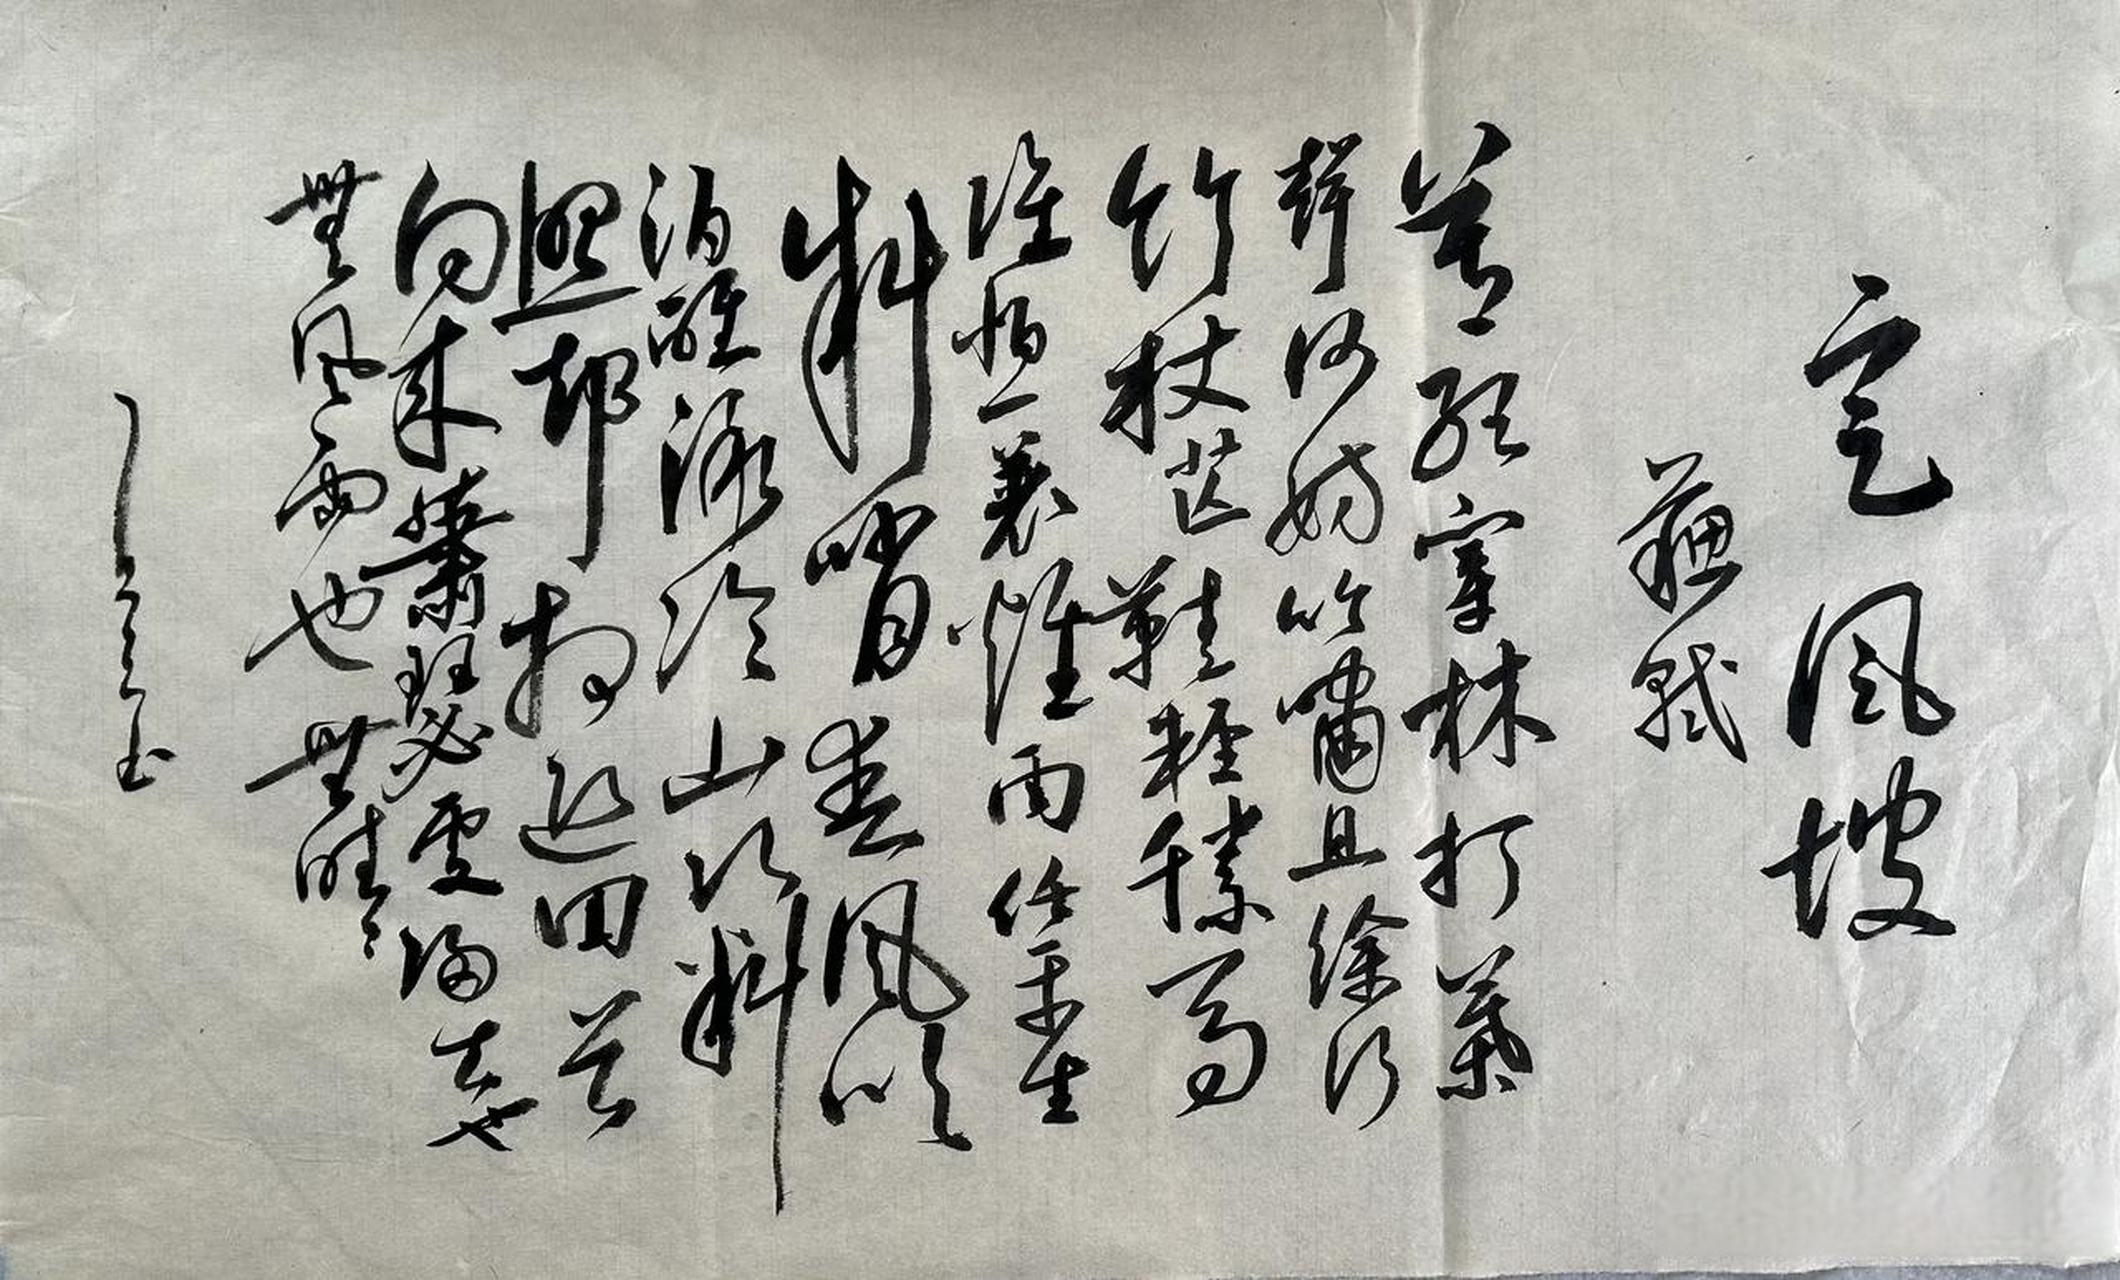 定風坡
蘇軾
莫聽穿林打葉
聲何妨吟嘯且徐行
竹杖芒鞋輕勝馬
誰怕一蓑煙雨任平生
料峭春風吹
酒醒微冷山頭斜
照却相迎回首
向来蕭瑟處歸去也
無風雨也無晴